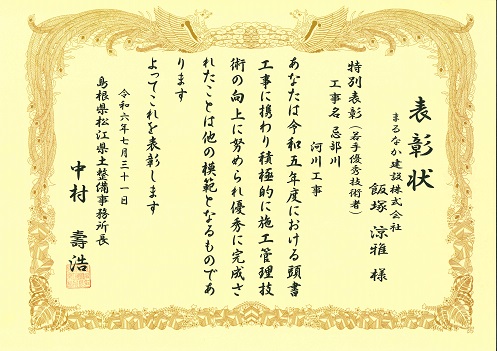 表彰状
まるなか建設株式会社
飯塚 涼雅 様
特別表彰（若手優秀技術者）
工事名 忌部川
河川工事
あなたは令和五年度における頭書
工事に携わり積極的に施工管理技
術の向上に努められ優秀に完成さ
れたことは他の模範となるものであ
ります
よってこれを表彰します
令和六年七月三十一日
島根県松江県土整備事務所長
中村 壽浩